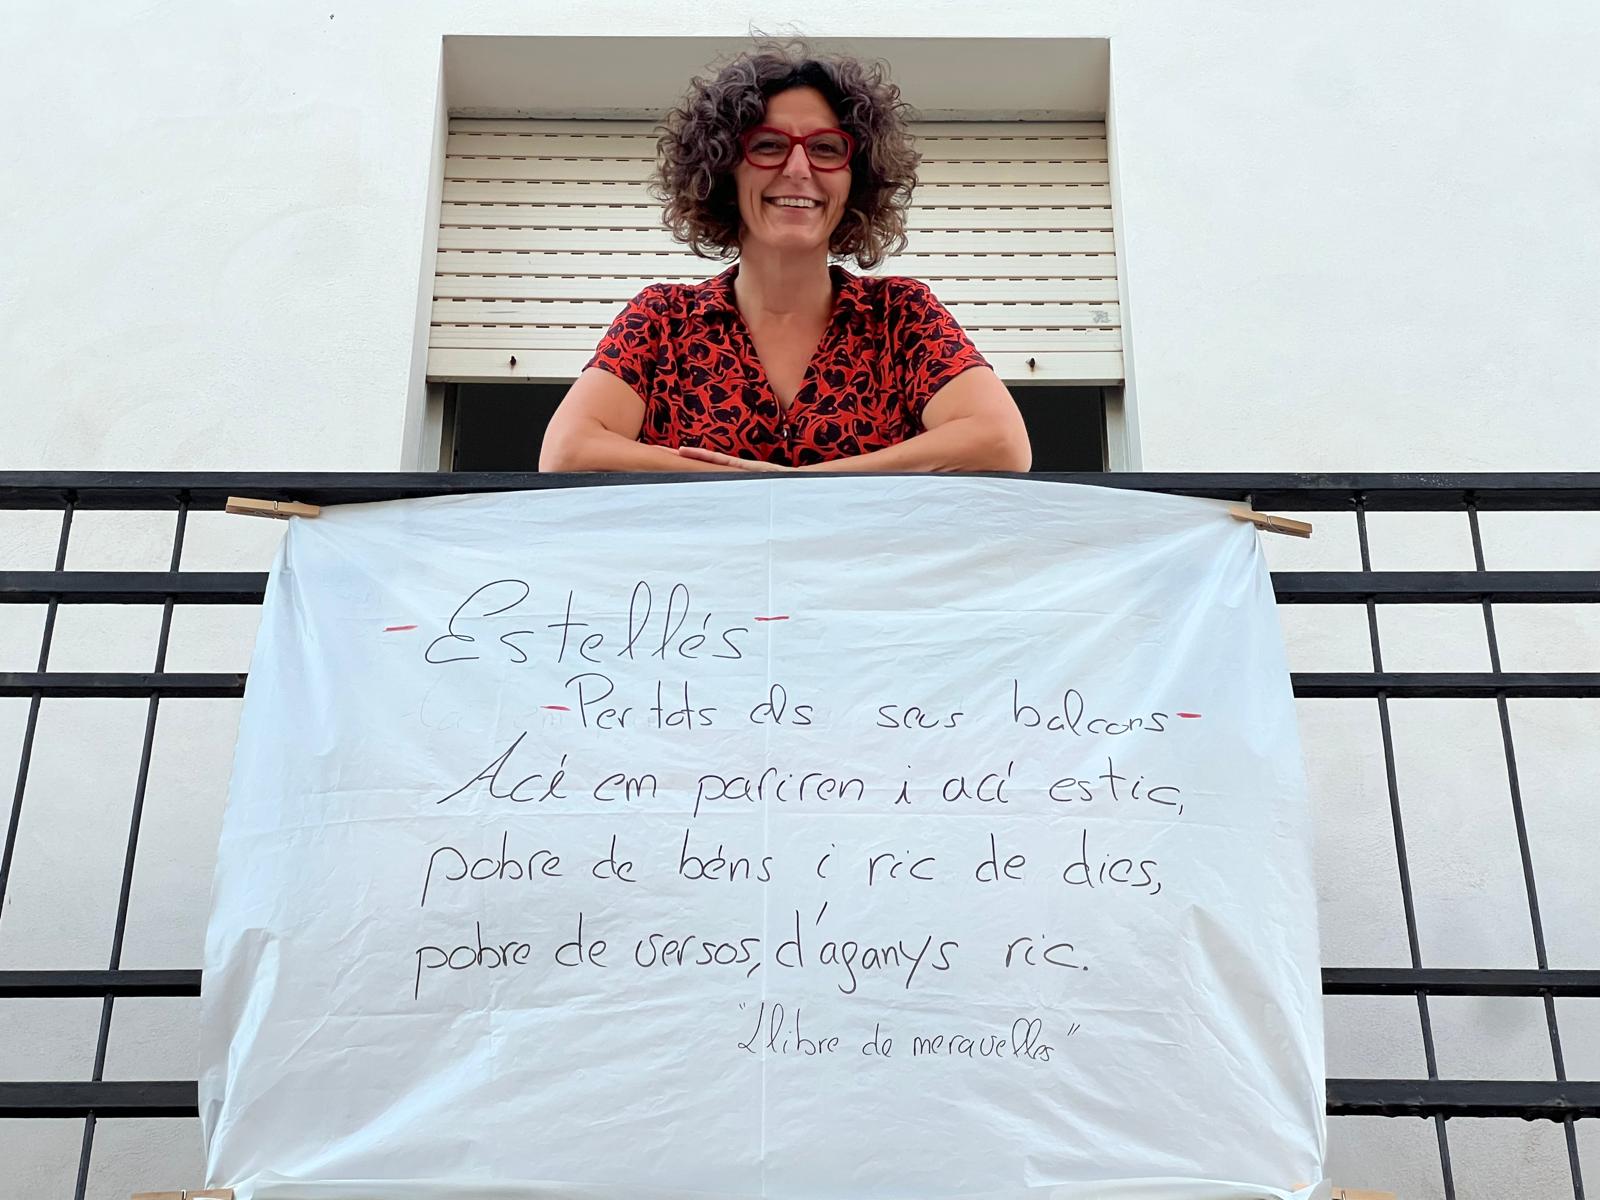 - Estellés -
- Per tots els seus balcons -
Ací em pariren i ací estic,
pobre de béns i ric de dies,
pobre de versos, d'aganys ric.
"Llibre de meravelles"